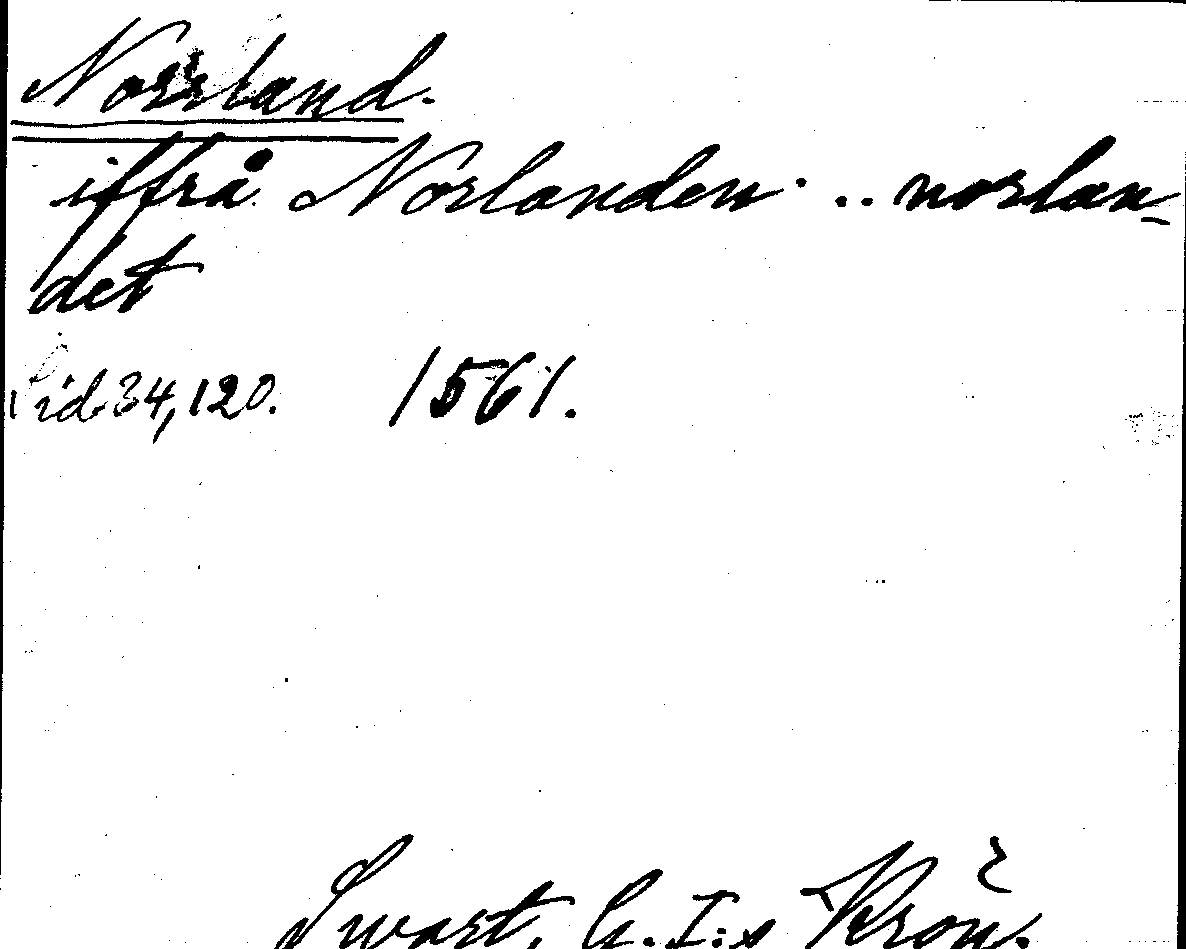 Norrland.
iffrå Norlanden .. norlan-
det
Sid 34, 120. 1561.
Swart, G. I:s Krön.